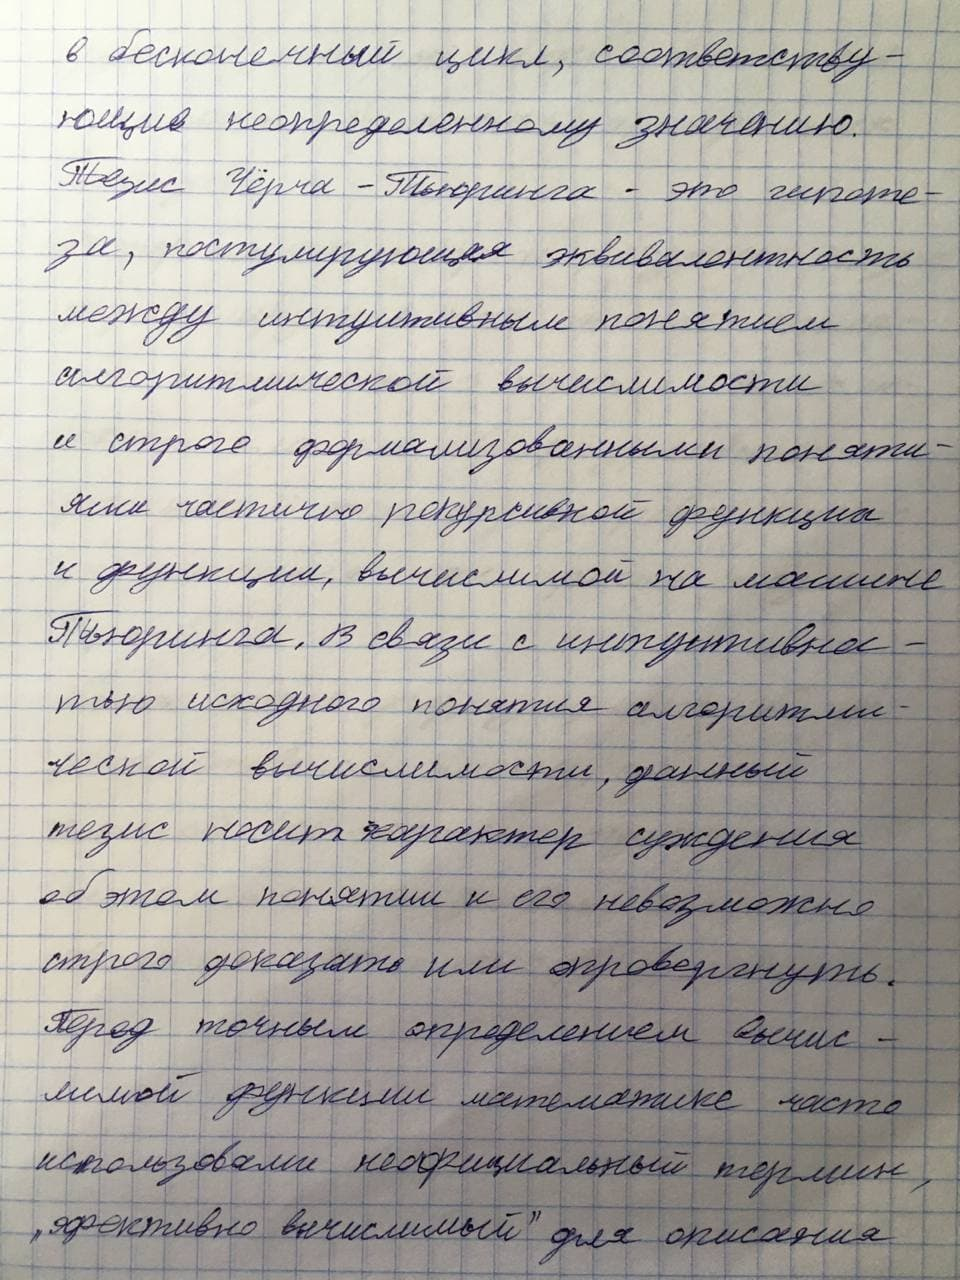 в бесконечный цикл, соответству-
ющие неопределенному значению.
Тезис Чёрча - Тьюринга - это гипоте-
за, постулирующая эквивалентность
между интуитивным понятием
алгоритмической вычислимости
и строго формализованными поняти-
ями частично рекурсивной функции
и функции, вычислимой на машине
Тьюринга. В связи с интуитивнос-
тью исходного понятия алгоритми-
ческой вычислимости, данный
тезис носит характер суждения
об этом понятии и его невозможно
строго доказать или опровергнуть.
Перед точным определением вычис-
лимой функции математике часто
использовали неофициальный термин,
„эфективно вычислимый" для описания